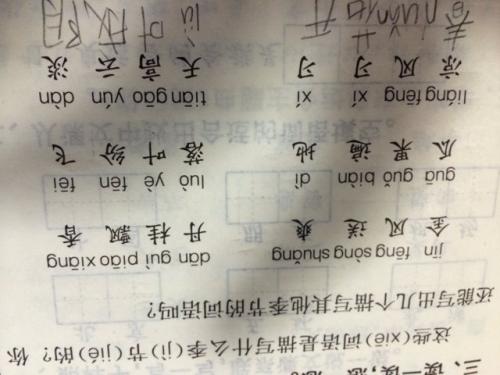 三、读一读，想一想。
这些(xiē)词语是描写什么季(jì)节(jié)的？你
还能写出几个描写其他季节的词语吗？
jīn fēng sòng shuǎng dān guì piāo xiāng
金 风 送 爽 丹 桂 飘 香
guā guǒ biàn dì luò yè fēn fēi
瓜 果 遍 地 落 叶 纷 飞
liáng fēng xí xí tiān gāo yún dàn
凉 风 习 习 天 高 云 淡
春 nuǎn 花 开 lǜ 叶 成 阴